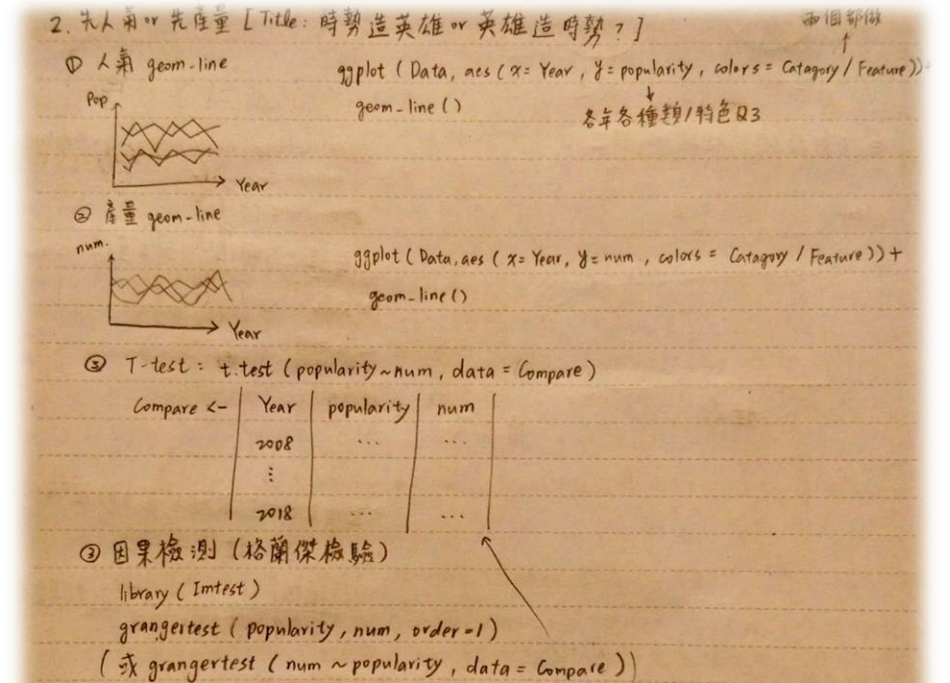 2. 先人氣 or 先產量 [Title: 時勢造英雄 or 英雄造時勢?]
兩個都做
① 人氣 geom-line
ggplot (Data, aes (x= Year, y= popularity, colors = Catagory / Feature))+
geom-line ()
各年各種類/特色Q3
Pop
Year
② 產量 geom-line
num.
ggplot (Data, aes (x= Year, y= num, colors = Catagory / Feature)) +
geom-line ()
Year
③ T-test: t.test (popularity~num, data = Compare)
Compare <- Year popularity num
2008 ... ...
⋮
2018 ... ...
③ 因果檢測 (格蘭傑檢驗)
library (lmtest)
grangertest (popularity, num, order=1)
(或 grangertest (num ~ popularity, data = Compare))